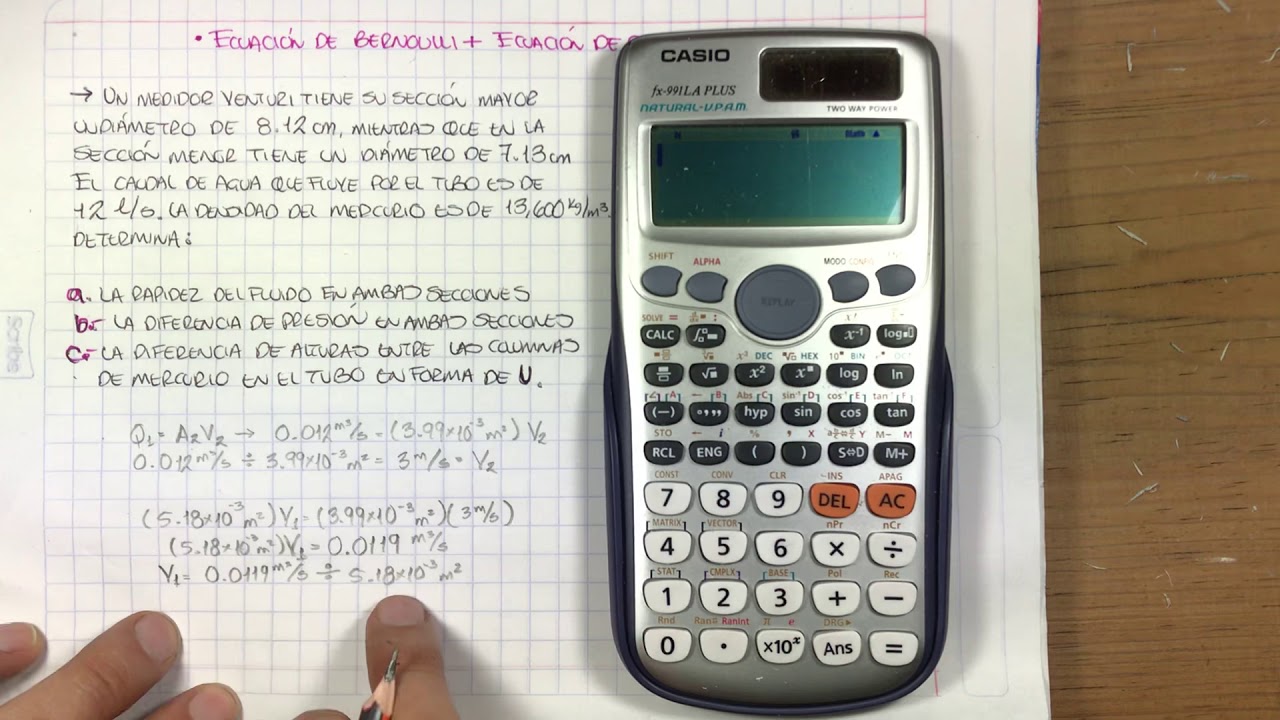 • ECUACIÓN DE BERNOULLI + ECUACIÓN DE
→ UN MEDIDOR VENTURI TIENE SU SECCIÓN MAYOR
UN DIÁMETRO DE 8.12 cm, MIENTRAS QUE EN LA
SECCIÓN MENOR TIENE UN DIÁMETRO DE 7.13 cm
EL CAUDAL DE AGUA QUE FLUYE POR EL TUBO ES DE
12 l/s. LA DENSIDAD DEL MERCURIO ES DE 13,600 kg/m³.
DETERMINA:
a.- LA RAPIDEZ DEL FLUIDO EN AMBAS SECCIONES
b.- LA DIFERENCIA DE PRESIÓN EN AMBAS SECCIONES
c.- LA DIFERENCIA DE ALTURAS ENTRE LAS COLUMNAS
DE MERCURIO EN EL TUBO EN FORMA DE U.
Q₁ = A₂V₂ → 0.012 m³/s = (3.99×10⁻³ m²) V₂
0.012 m³/s ÷ 3.99×10⁻³ m² = 3 m/s = V₂
(5.18×10⁻³ m²) V₁ = (3.99×10⁻³ m²)(3 m/s)
(5.18×10⁻³ m²) V₁ = 0.0119 m³/s
V₁ = 0.0119 m³/s ÷ 5.18×10⁻³ m²
Scribe
CASIO
fx-991LA PLUS
NATURAL-V.P.A.M.
TWO WAY POWER
Math ▲
SHIFT ALPHA MODO CONFIG
REPLAY
SOLVE = : x!
CALC x⁻¹ log
x³ DEC HEX 10 BIN OCT
√ x² log ln
∠ A ← B Abs C sin⁻¹ D cos⁻¹ E tan⁻¹ F
(−) hyp sin cos tan
STO ← i % , X M− M
RCL ENG ( ) S⇔D M+
CONST CONV CLR INS APAG
7 8 9 DEL AC
MATRIX VECTOR nPr nCr
4 5 6 × ÷
STAT CMPLX BASE Pol Rec
1 2 3 + −
Rnd Ran# RanInt π e DRG▸
0 . ×10ˣ Ans =